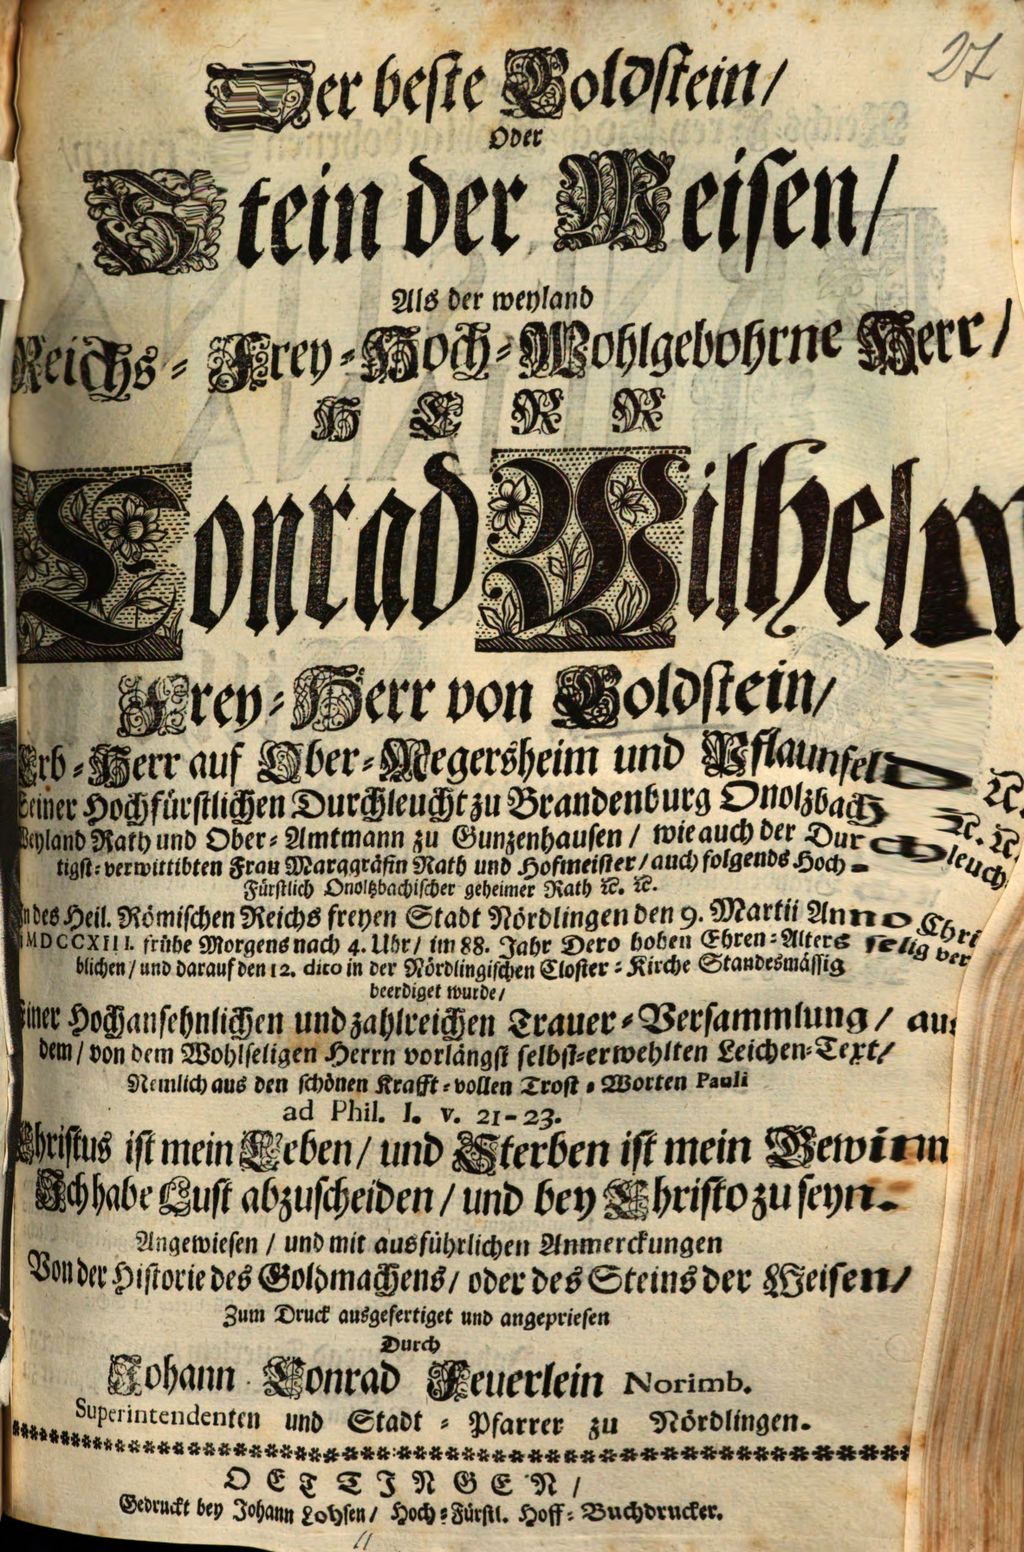 27
Der beste Goldstein/
Oder
Stein der Weisen/
Als der weyland
Reichs-Frey-Hoch-Wohlgebohrne Herr/
HERR
Conrad Wilhelm
Frey-Herr von Goldstein/
Erb-Herr auf Ober-Megersheim und Pflaunfeld ꝛc.
Seiner Hochfürstlichen Durchleucht zu Brandenburg Onolzbach ꝛc. ꝛc.
Weyland Rath und Ober-Amtmann zu Gunzenhausen/ wie auch der Durchleuch
tigst-verwittibten Frau Marggräfin Rath und Hofmeister/ auch folgends Hoch-
Fürstlich Onoltzbachischer geheimer Rath ꝛc. ꝛc.
In des Heil. Römischen Reichs freyen Stadt Nördlingen den 9. Martii Anno Chri
MDCCXIII. frühe Morgens nach 4. Uhr/ im 88. Jahr Dero hohen Ehren-Alters selig ver
blichen/ und darauf den 12. dito in der Nördlingischen Closter-Kirche Standesmässig
beerdiget wurde/
Einer Hochansehnlichen und zahlreichen Trauer-Versammlung/ aus
dem/ von dem Wohlseligen Herrn vorlängst selbst-erwehlten Leichen-Text/
Nemlich aus den schönen Krafft-vollen Trost-Worten Pauli
ad Phil. I. v. 21-23.
Christus ist mein Leben/ und Sterben ist mein Gewinn
Ich habe Lust abzuscheiden/ und bey Christo zu seyn.
Angewiesen/ und mit ausführlichen Anmerckungen
Von der Historie des Goldmachens/ oder des Steins der Weisen/
Zum Druck ausgefertiget und angepriesen
Durch
Johann Conrad Feuerlein Norimb.
Superintendenten und Stadt-Pfarrer zu Nördlingen.
OETTINGEN/
Gedruckt bey Johann Lohsen/ Hoch-Fürstl. Hoff-Buchdrucker.